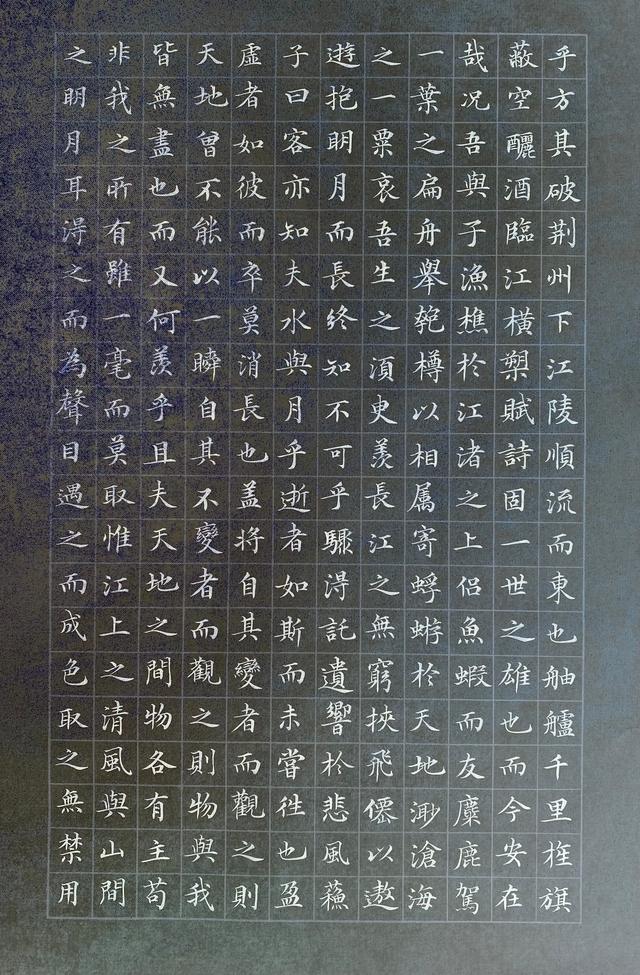 乎方其破荆州下江陵順流而東也舳艫千里旌旗
蔽空釃酒臨江橫槊賦詩固一世之雄也而今安在
哉况吾與子漁樵於江渚之上侣魚蝦而友麋鹿駕
一葉之扁舟舉匏樽以相属寄蜉蝣於天地渺滄海
之一粟哀吾生之須臾羨長江之無窮挾飛僊以遨
遊抱明月而長終知不可乎驟得託遺響於悲風蘓
子曰客亦知夫水與月乎逝者如斯而未嘗往也盈
虛者如彼而卒莫消長也盖將自其變者而觀之則
天地曾不能以一瞬自其不變者而觀之則物與我
皆無盡也而又何羨乎且夫天地之間物各有主苟
非我之所有雖一毫而莫取惟江上之清風與山間
之明月耳得之而為聲目遇之而成色取之無禁用